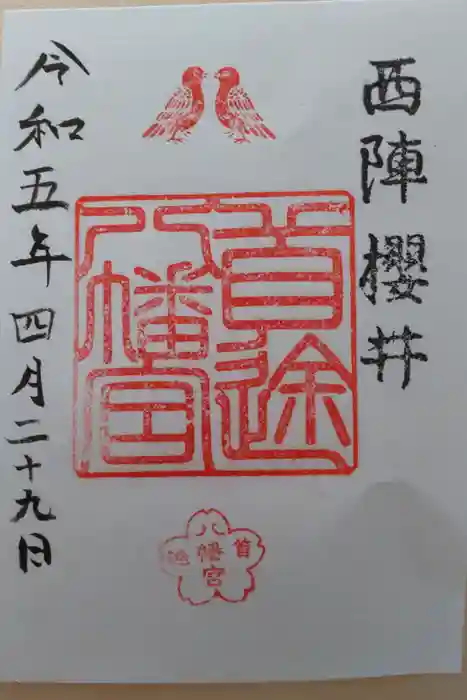 西陣櫻井
首途
八幡宮
八幡宮
首途
令和五年四月二十九日